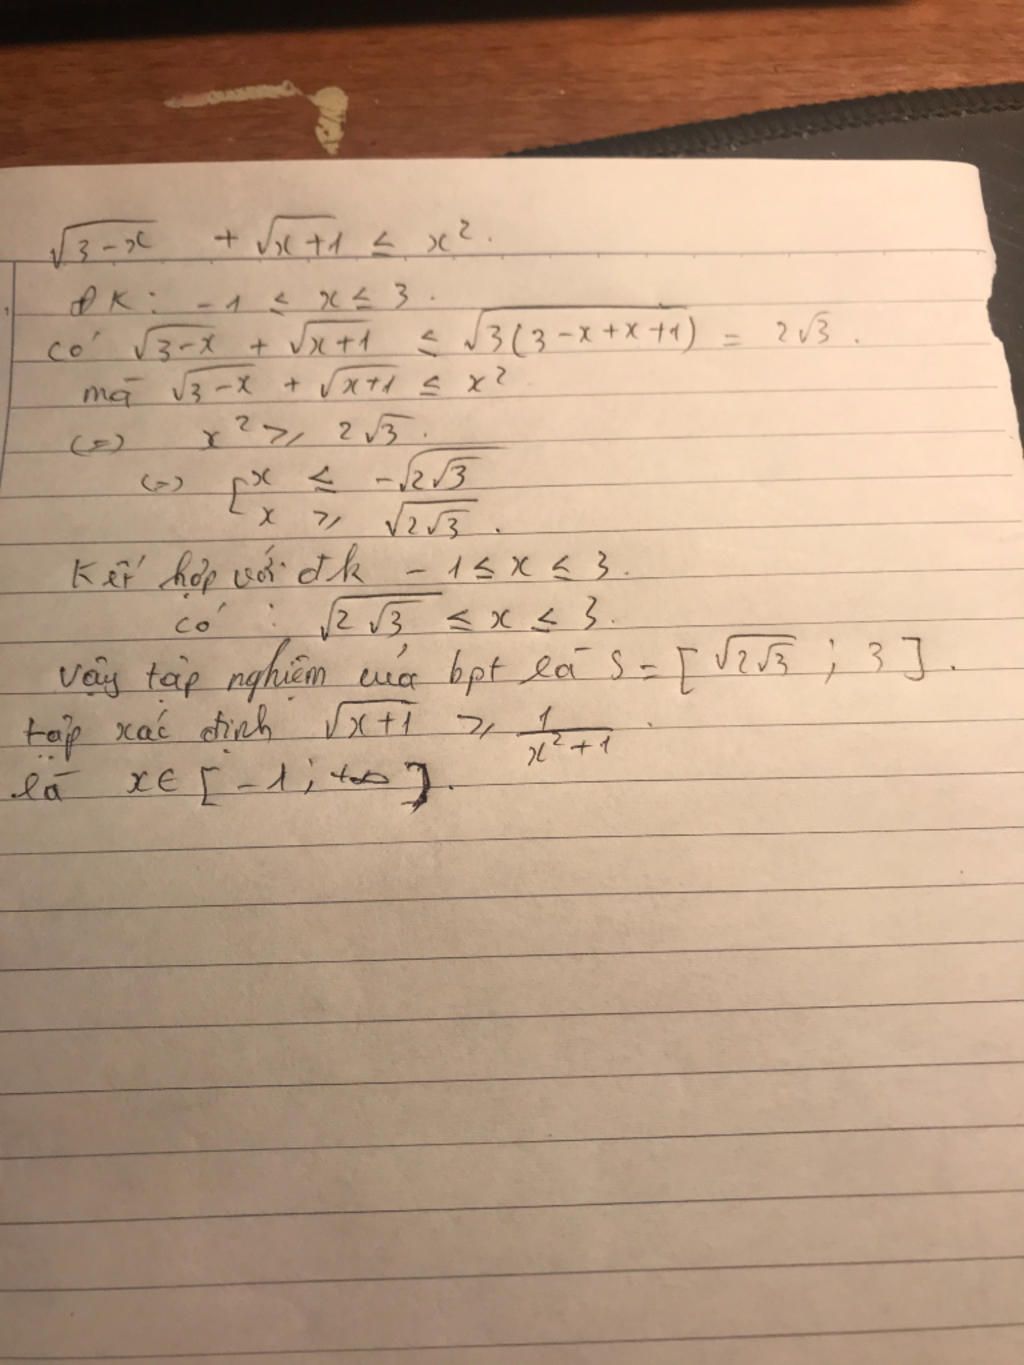 √(3-x) + √(x+1) ≤ x².
ĐK: -1 ≤ x ≤ 3.
có √(3-x) + √(x+1) ≤ √(3(3-x+x+1)) = 2√3.
mà √(3-x) + √(x+1) ≤ x²
(=) x² ≥ 2√3.
(=) [x ≤ -√(2√3)
x ≥ √(2√3).
Kết hợp với đk -1 ≤ x ≤ 3.
có : √(2√3) ≤ x ≤ 3.
Vậy tập nghiệm của bpt là S = [√(2√3) ; 3].
tập xác định √(x+1) ≥ 1/(x²+1).
là x ∈ [-1; +∞].